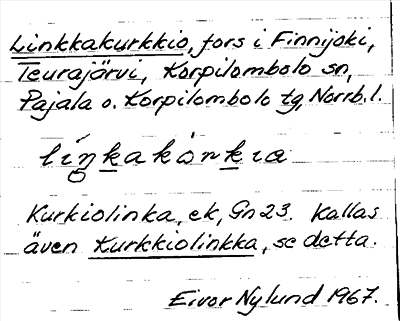 Linkkakurkkio, fors i Finnijoki,
Teurajärvi, Korpilombolo sn,
Pajala o. Korpilombolo tg, Norrb. l.
líŋkakȯrkia
Kurkiolinka, ek, Gn 23. Kallas
även Kurkkiolinkka, se detta.
Eivor Nylund 1967.